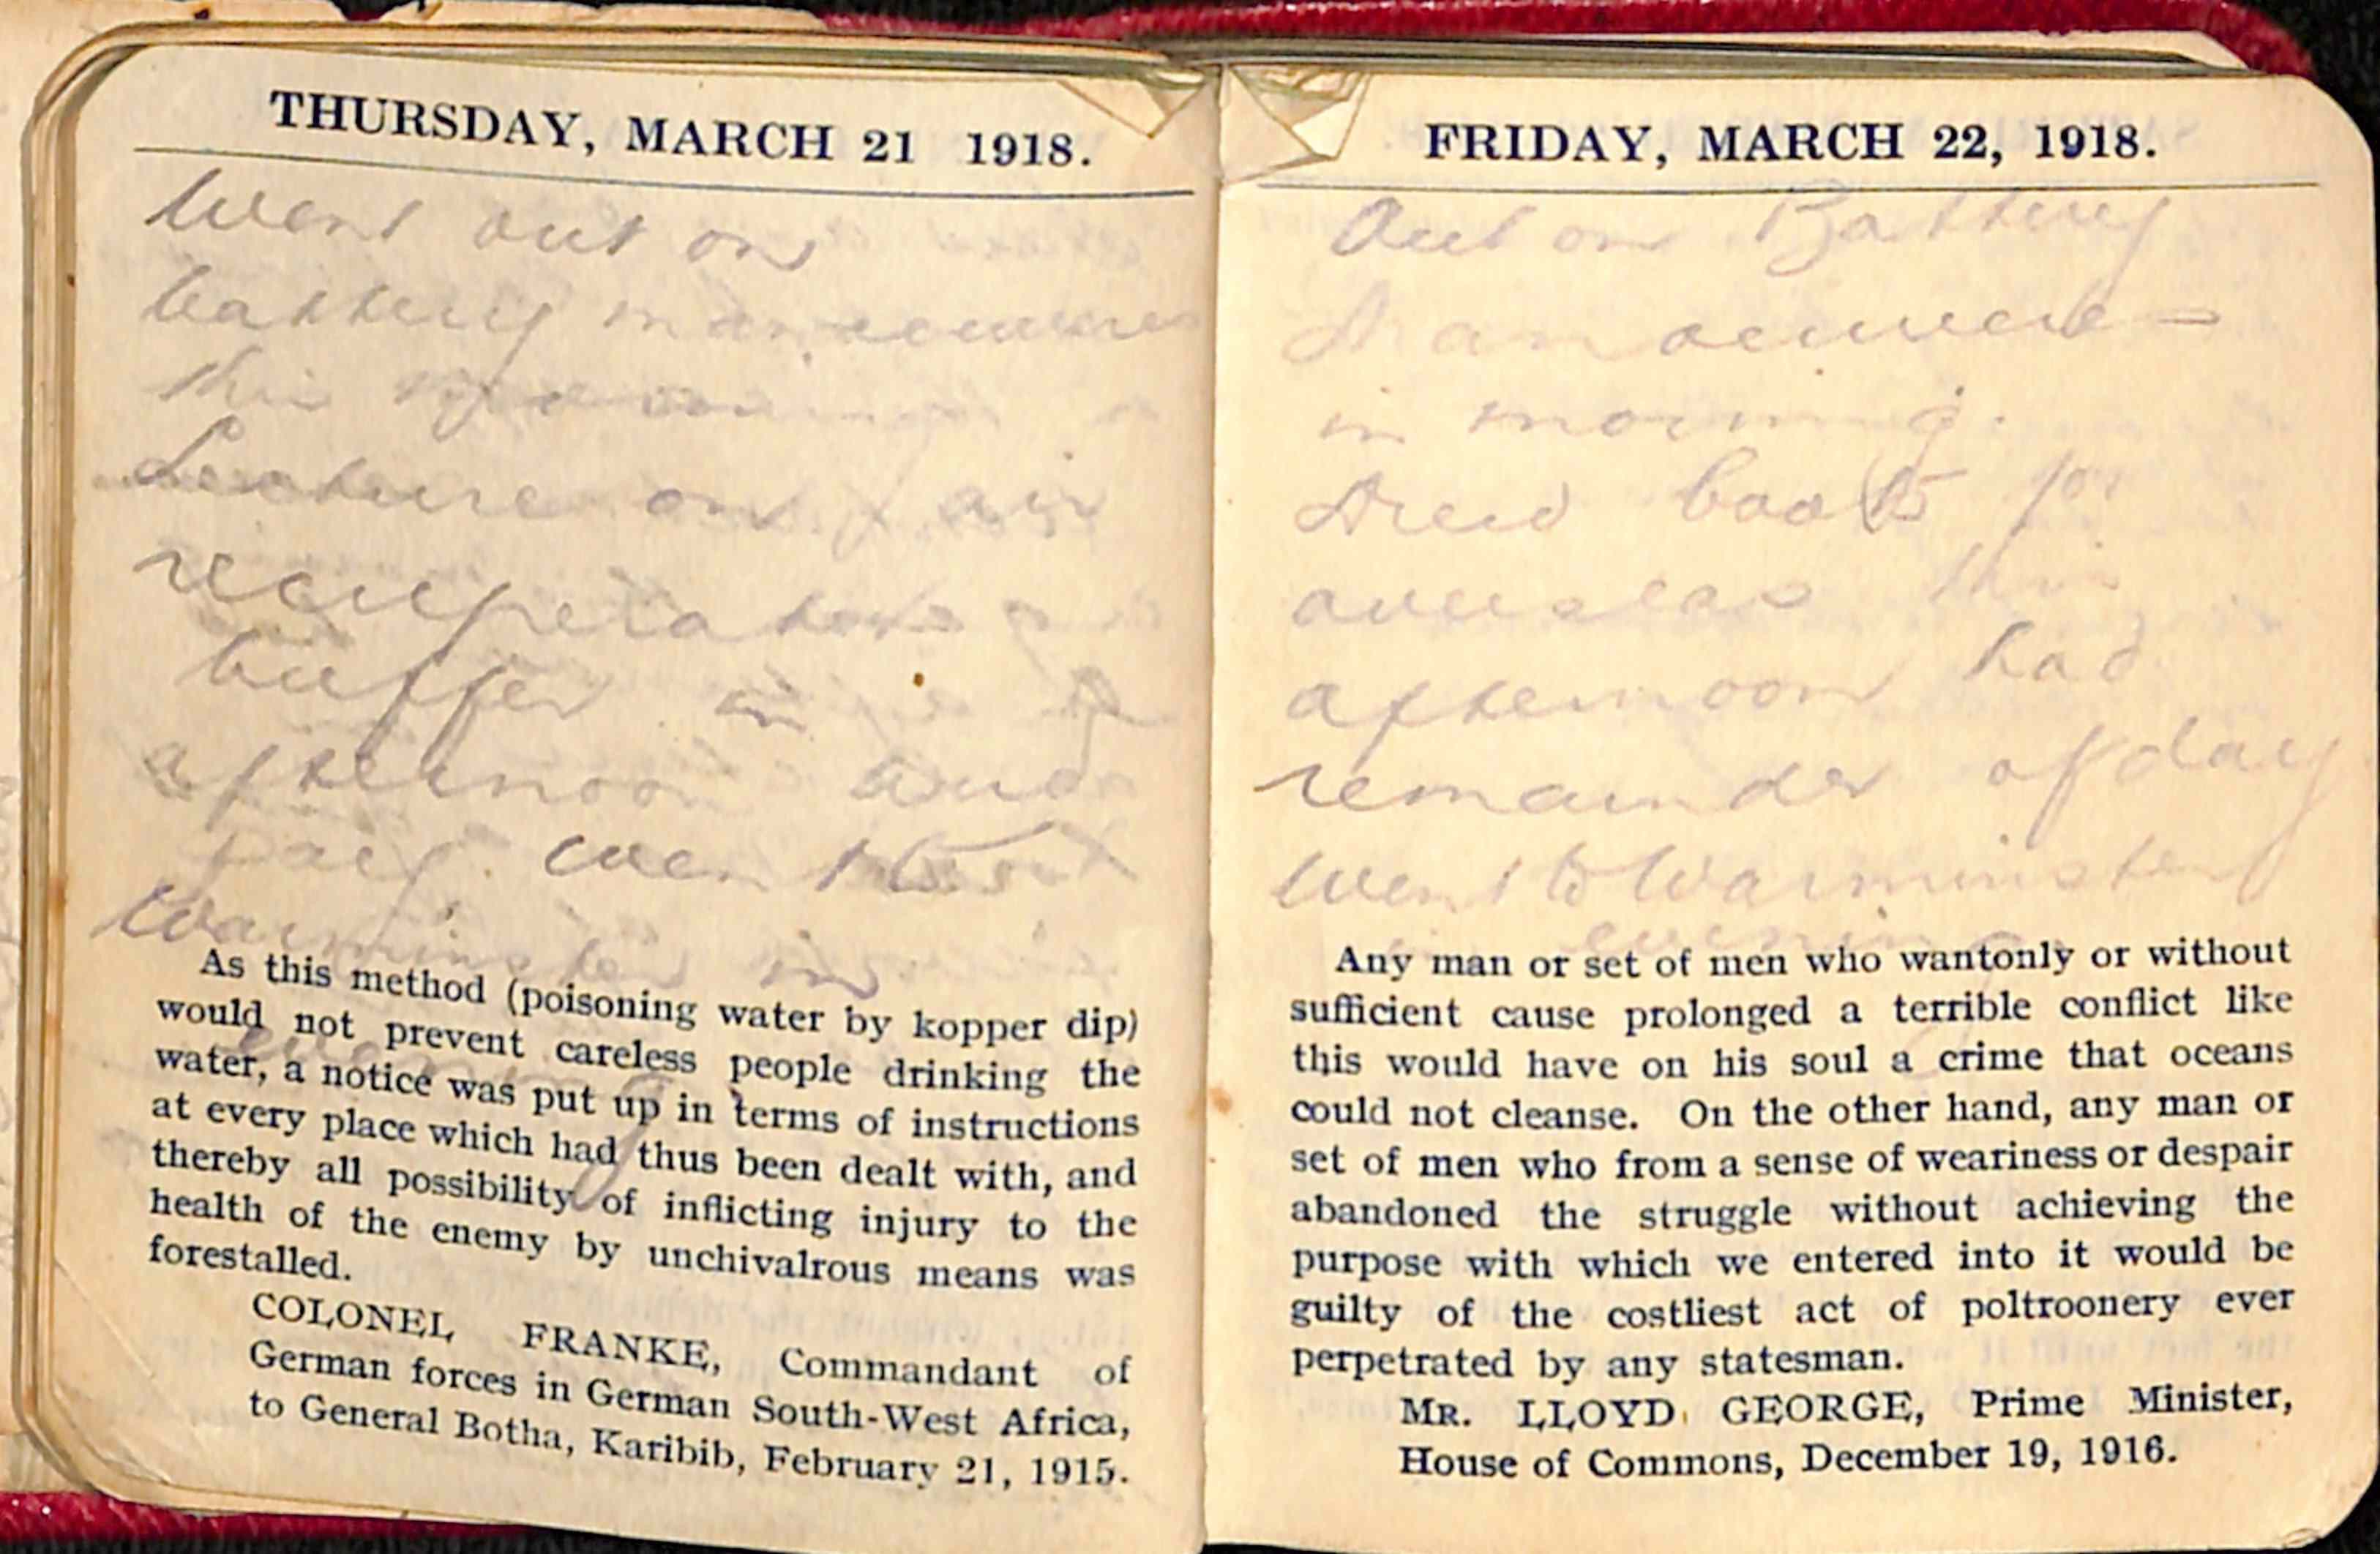 THURSDAY, MARCH 21 1918.
Went out on
battery manoeuvres
this morning
Lecture on air
recuperator
buffer in
afternoon and
Pay. Went to
Warminster in
evening
As this method (poisoning water by kopper dip)
would not prevent careless people drinking the
water, a notice was put up in terms of instructions
at every place which had thus been dealt with, and
thereby all possibility of inflicting injury to the
health of the enemy by unchivalrous means was
forestalled.
COLONEL FRANKE, Commandant of
German forces in German South-West Africa,
to General Botha, Karibib, February 21, 1915.
FRIDAY, MARCH 22, 1918.
Out on Battery
Manoeuvere -
in morning.
Drew boots for
overseas this
afternoon had
remainder of day
Went to Warminster
in evening
Any man or set of men who wantonly or without
sufficient cause prolonged a terrible conflict like
this would have on his soul a crime that oceans
could not cleanse. On the other hand, any man or
set of men who from a sense of weariness or despair
abandoned the struggle without achieving the
purpose with which we entered into it would be
guilty of the costliest act of poltroonery ever
perpetrated by any statesman.
MR. LLOYD GEORGE, Prime Minister,
House of Commons, December 19, 1916.